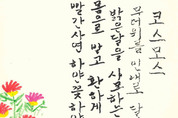 코스모스
무더위를 인내로 달
밝은 달을 사모하는
몸으로 말고 환하게
빨간 사면 하얀 꽃 하얀